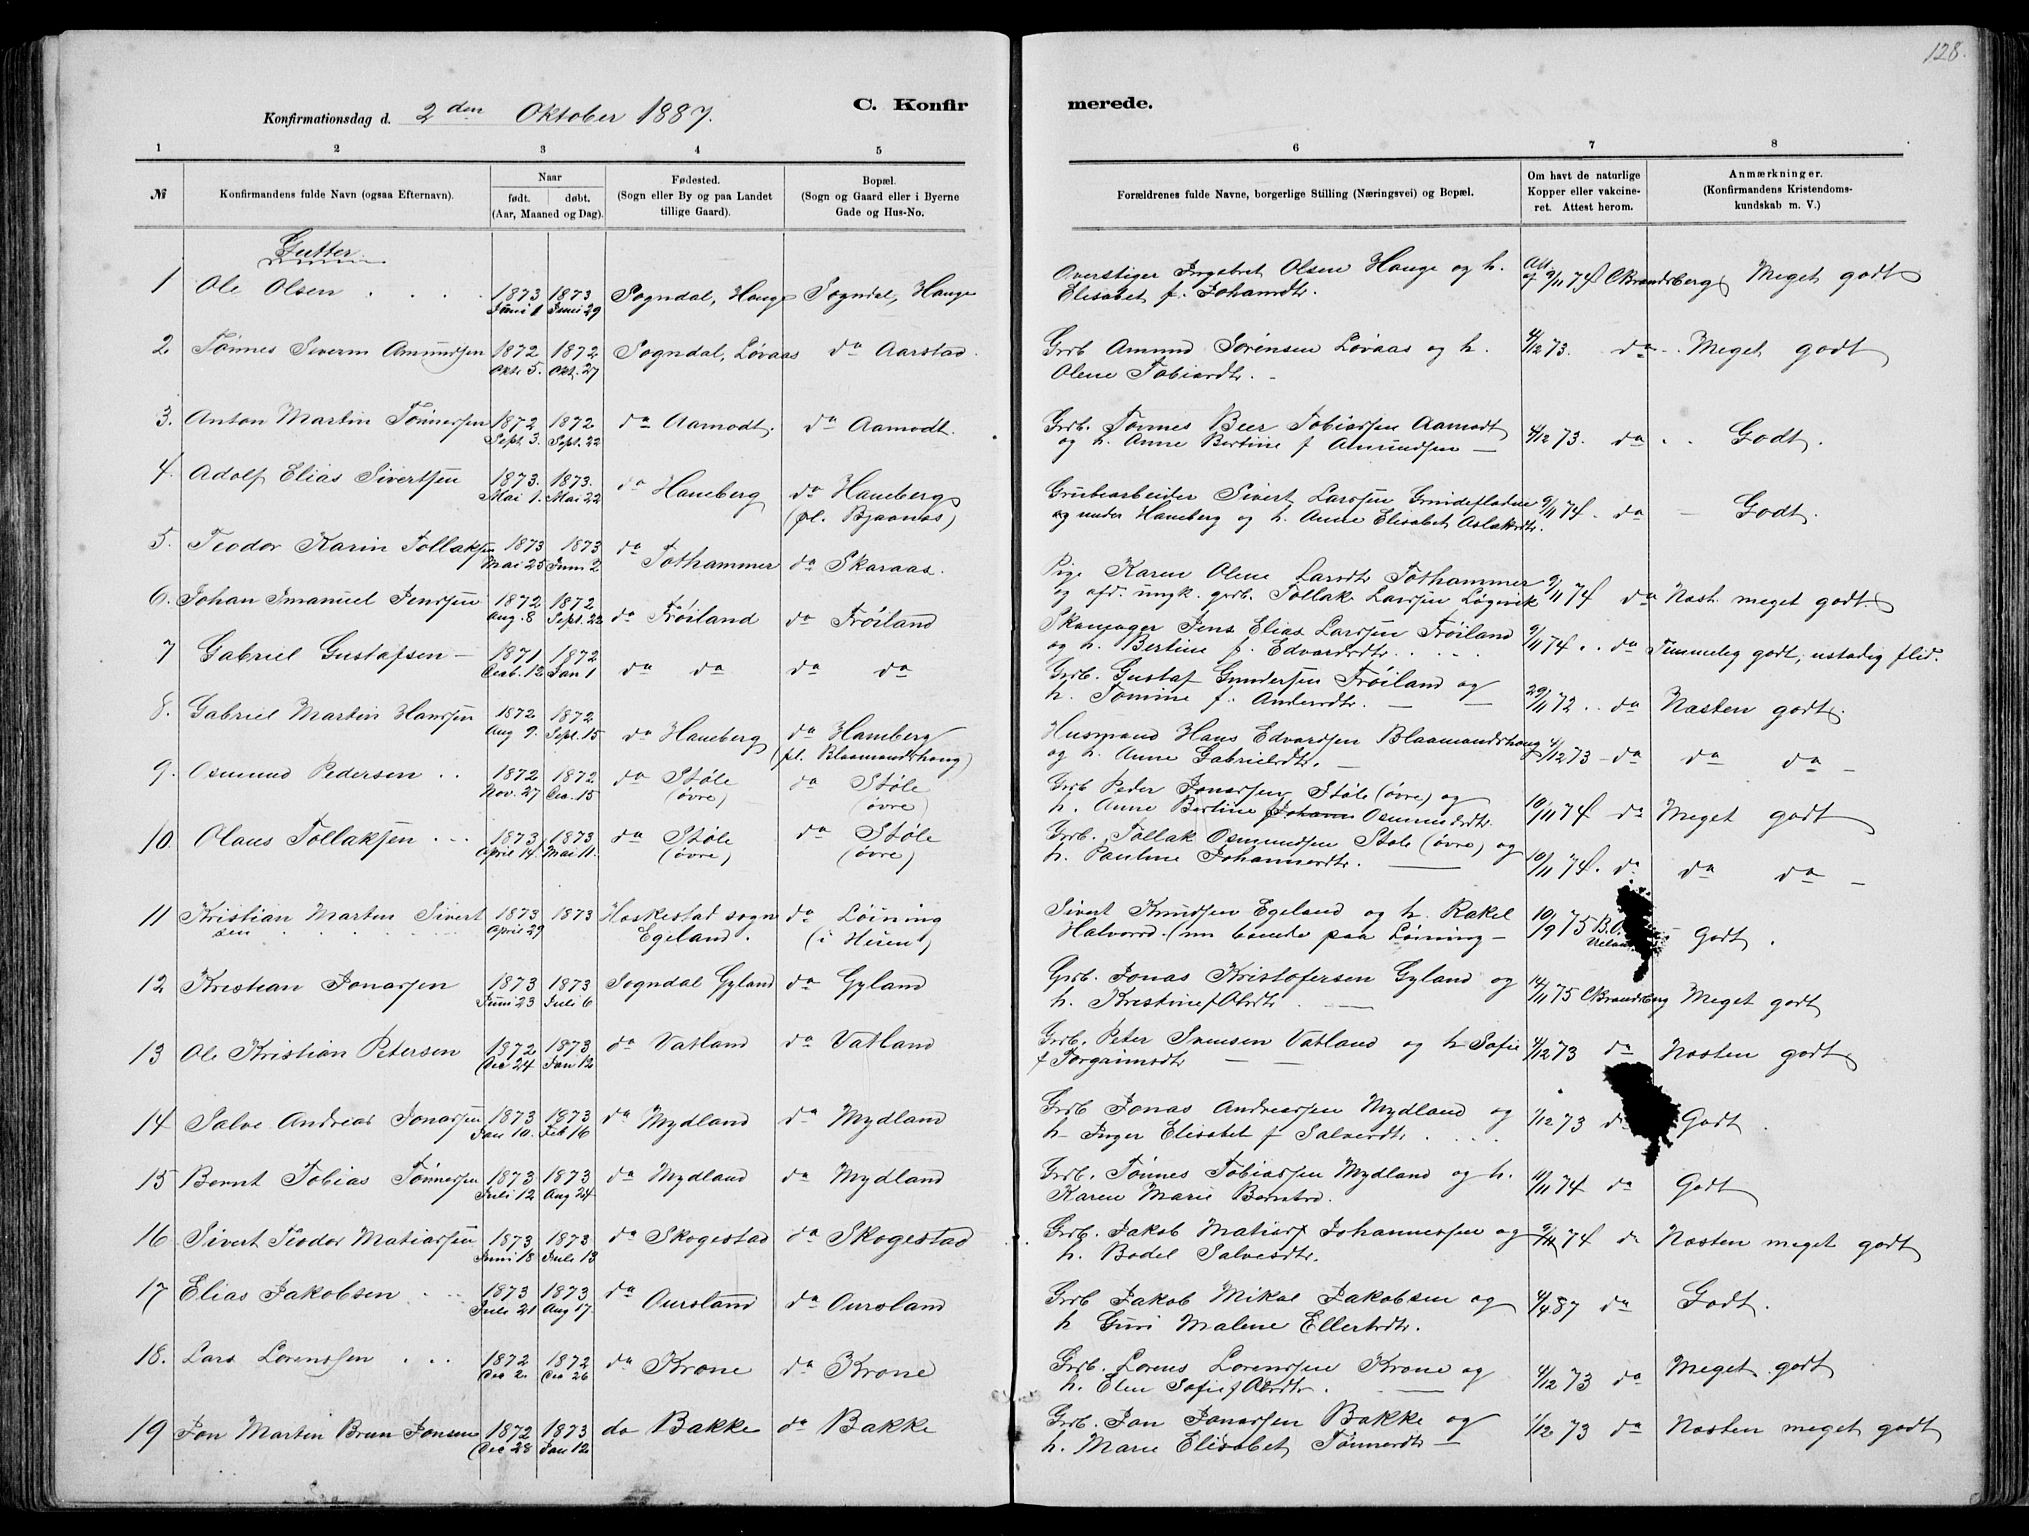 128.
C. Konfirmerede.
Konfirmationsdag d. 2den Oktober 1887.
1 2 3 4 5 6 7 8
№
Konfirmandens fulde Navn (ogsaa Efternavn).
Naar
født. døbt.
(Aar, Maaned og Dag).
Fødested.
(Sogn eller By og paa Landet
tillige Gaard).
Bopæl.
(Sogn og Gaard eller i Byerne
Gade og Hus-No.
Forældrenes fulde Navne, borgerlige Stilling (Næringsvei) og Bopæl.
Om havt de naturlige
Kopper eller vakcine-
ret. Attest herom.
Anmærkninger.
(Konfirmandens Kristendoms-
kundskab m. V.)
Gutter
1 Ole Olsen 1873 Juni 1 1873 Juni 29 Sogndal, Hauge Sogndal, Hauge
Ingebret Olsen Hauge og h.
Elisabet f. Johansdtr. Att. af 9/11 74 C Brandsberg Meget godt
2. Tönnes Severin Amundsen 1872 Okt. 5. 1872 Okt. 27 Sogndal, Løvaas do Aarstad.
Grdb Amund Sørensen Løvaas og h.
Olene Tobiasdtr. 4/12 73. do Meget godt
3. Anton Martin Tönnessen 1872 Sept. 3. 1872 Sept. 22 do Aamodt. do Aamodt.
Grdb. Tønnes Beer Tobiassen Aamodt
og h. Anne Bertine f Amundsen 4/12 73. do Godt.
4. Adolf Elias Sivertsen 1873. Mai 1. 1873. Mai 22 do Haneberg do Haneberg
(pl. Bjaanæs)
Grubearbeider Sivert Larssen
og under Haneberg og h. Anne Elisabet Aslaksdtr. 9/11 74. do Godt.
5. Teodor Karin Tollaksen 1873 Mai 25 1873 Juni 2 do Tothammer do Skaraas.
Pige Karen Olene Larsdtr Tothammer
og afd. ungk. grdb. Tollak Larssen Løgevik 9/11 74 do Næst. meget godt.
6. Johan Imanuel Jenssen 1872 Aug. 8 1872 Sept. 22 do Frøiland do Frøiland
Skomager Jens Elias Larssen Frøiland
og h. Bertine f. Edvardsdtr. 9/11 74. do Temmelig godt, ustadig flid.
7 Gabriel Gustafsen 1871 Decb. 12 1872 Jan 1 do do do do
Grdb. Gustaf Gundersen Frøiland og
h. Tomine f. Andersdtr. 29/11 72. do Næsten godt.
8. Gabriel Martin Hanssen 1872 Aug 9. 1872 Sept. 15 do Haneberg do Haneberg
(pl. Blaamandshaug)
Husmand Hans Edvardsen Blaamandshaug
og h. Anne Gabrielsdtr. 4/12 73 do do do
9. Osmund Pedersen 1872 Nov. 27 1872 Dec. 15 do Støle (øvre) do Støle (øvre)
Grdb Peder Jonassen Støle (øvre) og
h. Anne Bertine Osmundsdtr. 10/11 74 do Meget godt
10. Olaus Tollaksen 1873 April 14. 1873 Mai 11. do Støle (øvre) do Støle (øvre)
Grdb. Tollak Osmundsen Støle (øvre) og
h. Pauline Johannesdtr. 10/11 74. do do do
11 Kristian Martin Sivertsen 1873 April 29 1873 Heskestad sogn Egeland. do Løining
(i Heien)
Sivert Knudsen Egeland og h. Rakel
Halvorsd. (nu boende paa Løining 10/9 75 Godt.
12 Kristian Jonassen 1873 Juni 23 1873 Juli 6 Sogndal Gyland do Gyland
Grdb. Jonas Kristofersen Gyland og
h. Kristine 14/11 75 C Brandsberg Meget godt
13 Ole Kristian Petersen 1872 Dec 24 1873 Jan 12 do Vatland do Vatland
Grdb. Peter Svensen Vatland og h Sofie
f Torgrimsdtr 4/12 73 do Næsten godt
14 Salve Andreas Jonassen 1873 Jan 10. 1873 Feb 16 do Mydland do Mydland
Grdb Jonas Andreassen Mydland og
h Inger Elisabet f Salvesdtr 1/12 73 Godt
15 Bernt Tobias Tönnessen 1873 Juli 12 1873 Aug 24 do Mydland do Mydland
Grdb. Tönnes Tobiassen Mydland og h.
Karen Marie 11/11 74 do Godt
16 Sivert Teodor Matiassen 1873 Juni 18 1873 Juli 13 do Skogestad do Skogestad
Grdb. Jakob Matias Johannessen og
h. Bodel Salvesdtr. 9/11 74 do Næsten meget godt
17 Elias Jakobsen 1873 Juli 21 1873 Aug 17 do Oursland do Oursland
Grdb Jakob Mikal Jakobsen og
h Guri Malene 4/4 87 do Godt.
18. Lars Lorenssen 1872 Dec 2. 1872 Dec 26 do Krone do Krone
Grdb. Lorens Lorenssen Krone og
h. Elen Sofie 4/12 73 do Meget godt
19 Jon Martin Brun Jonsen 1872 Dec 28 1873 Jan 12 do Bakke do Bakke
Grdb. Jon Jonassen Bakke og
h. Marie Elisabet Tønnesdtr 1/12 73 do Næsten meget godt